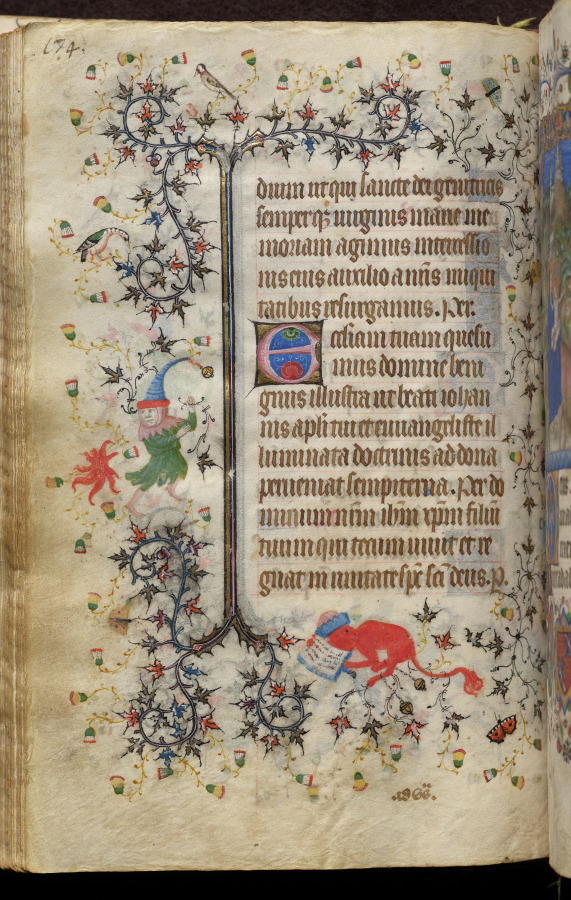 174.
dium ut qui sancte dei genitricis
semperq; uirginis marie me
moriam agimus intercessio
nis eius auxilio a nr̄is iniqui
tatibus resurgamus. Per.
Ecclesiam tuam quesu
mus domine beni
gnus illustra ut beati iohan
nis apl̄i tui et euuangeliste il
luminata doctrinis ad dona
perueniat sempiterna. Per do
minum nr̄m ih̄m xp̄m filiū
tuum qui tecum uiuit et re
gnat in unitate sp̄c sc̄i deus. P.